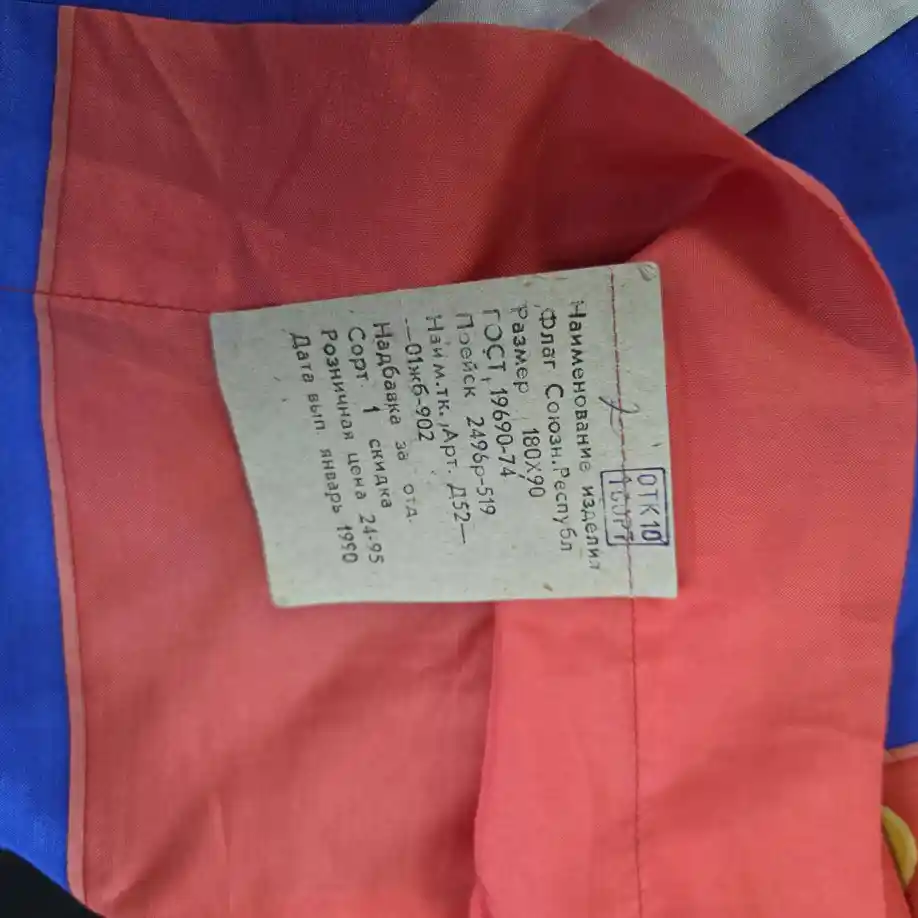 ОТК 10
Наименование изделия
Флаг Союзн.Республ
Размер 180х90
ГОСТ 19690-74
Прейск 2496р-519
Наим.тк.,Арт. Д52—
—01жб-902
Надбавка за отд.
Сорт 1 скидка
Розничная цена 24-95
Дата вып. январь 1990